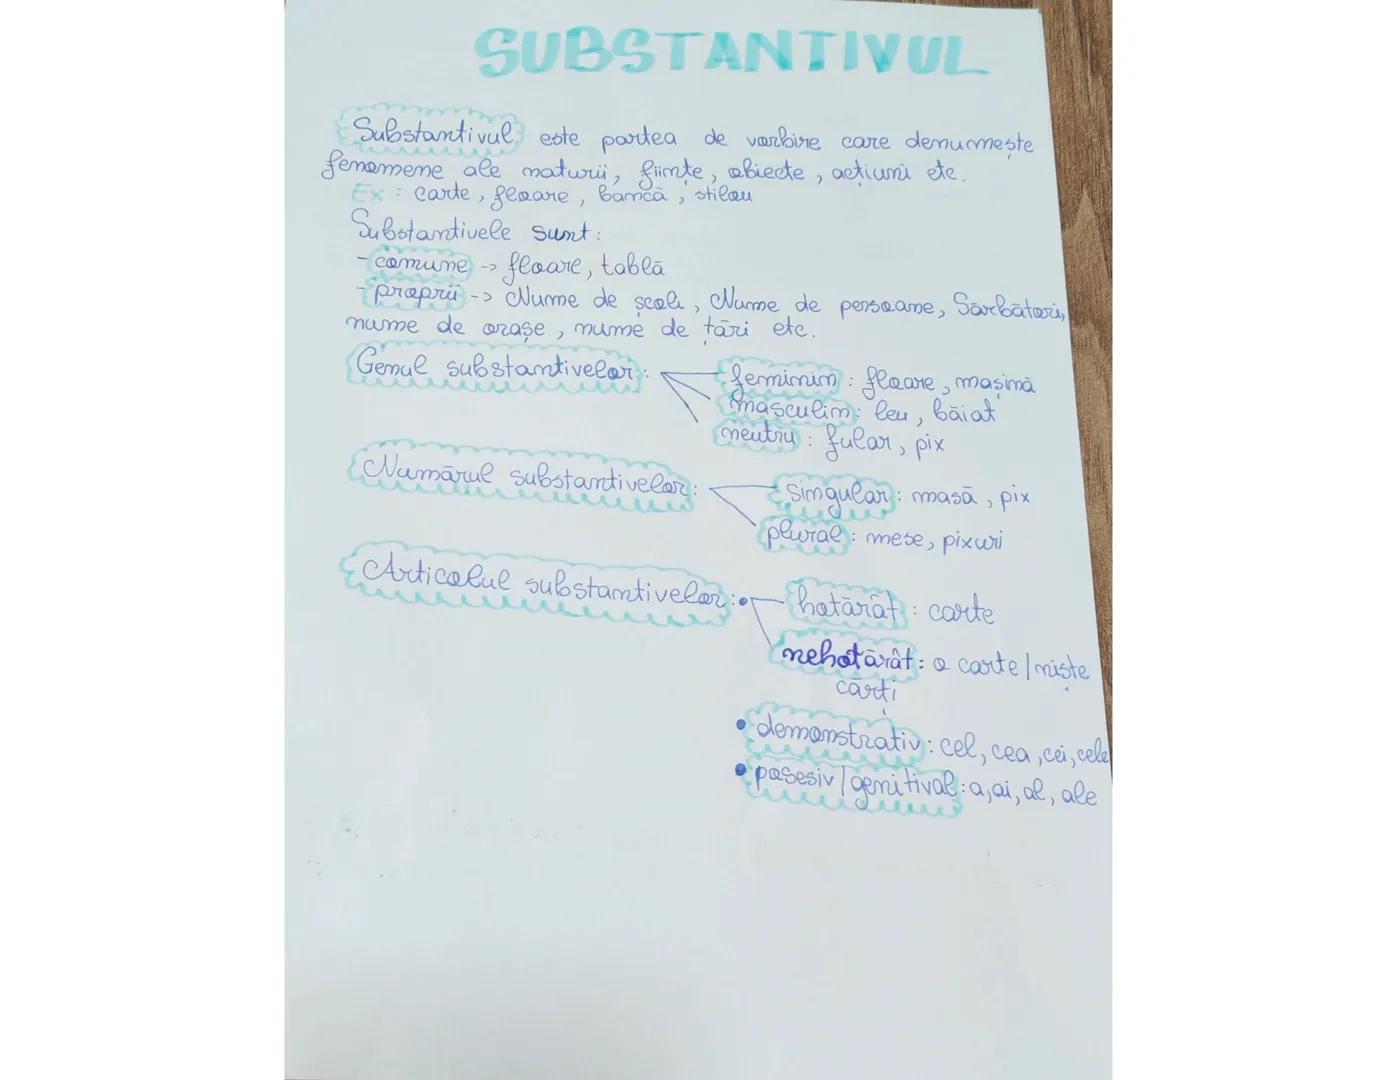 SUBSTANTIVUL
Substantivul este partea de vorbire care denumește
fenomene ale naturii, ființe, obiecte, acțiuni etc.
Ex : carte, floare, bancă, stilou
Substantivele sunt:
-comune -> floare, tablă
-proprii -> Nume de școli, Nume de persoane, Sărbători,
nume de orașe, nume de țări etc.
Genul substantivelor:
feminin : floare, mașină
masculin: leu, băiat
neutru : fular, pix
Numărul substantivelor:
singular: masă, pix
plural: mese, pixuri
Articolul substantivelor:
hotărât: carte
nehotărât: o carte/niște
cărți
• demonstrativ: cel, cea, cei, cele
• posesiv/genitival: a, ai, al, ale